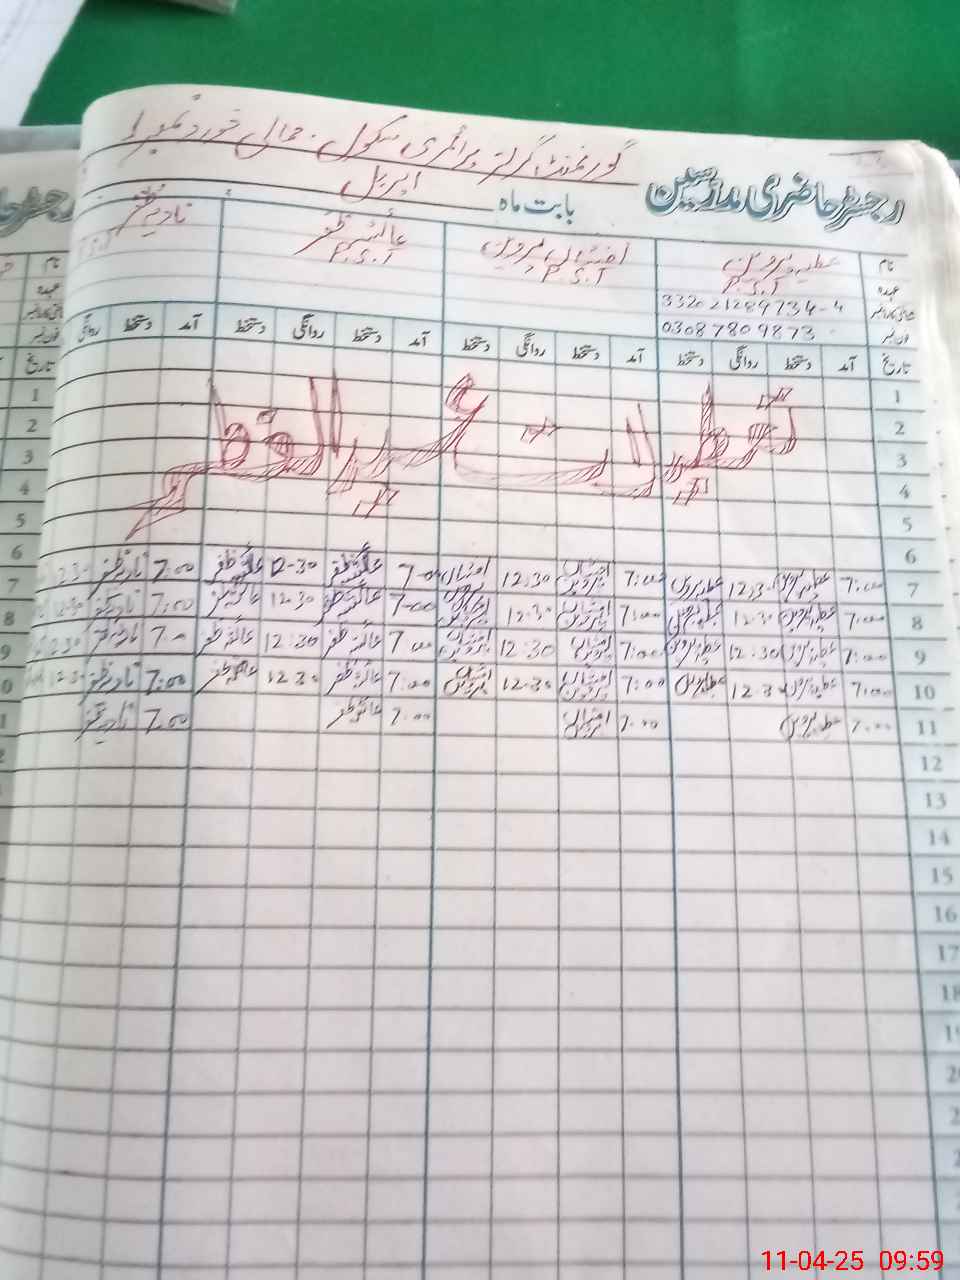 گورنمنٹ گرلز پرائمری سکول جمالی خورد نمبر 1
رجسٹر حاضری مدرسین بابت ماہ اپریل
نام عطیہ پروین امتیاز پروین عائشہ ظفر نادیہ ظفر
عہدہ P.S.T P.S.T P.S.T
33202 1289734-4
فون نمبر 0308 7809873
تاریخ آمد دستخط روانگی دستخط آمد دستخط روانگی دستخط آمد دستخط روانگی دستخط آمد دستخط روانگی
1
2
تعطیلات عید الفطر
3
4
5
6
7 7:00 عطیہ پروین 12:30 عطیہ پروین 7:00 امتیاز پروین 12:30 امتیاز پروین 7-00 عائشہ ظفر 12-30 عائشہ ظفر 7:00 نادیہ ظفر 12:30
8 7:00 عطیہ پروین 12:30 عطیہ پروین 7:00 امتیاز پروین 12:30 امتیاز پروین 7-00 عائشہ ظفر 12:30 عائشہ ظفر 7:00 نادیہ ظفر 12:30
9 7:00 عطیہ پروین 12:30 عطیہ پروین 7:00 امتیاز پروین 12:30 امتیاز پروین 7:00 عائشہ ظفر 12:30 عائشہ ظفر 7:00 نادیہ ظفر 12:30
10 7:00 عطیہ پروین 12:30 عطیہ پروین 7:00 امتیاز پروین 12:30 امتیاز پروین 7:00 عائشہ ظفر 12:30 عائشہ ظفر 7:00 نادیہ ظفر 12:30
11 7:00 عطیہ پروین 7:00 امتیاز پروین 7:00 عائشہ ظفر 7:00 نادیہ ظفر
12
13
14
15
16
17
18
11-04-25 09:59